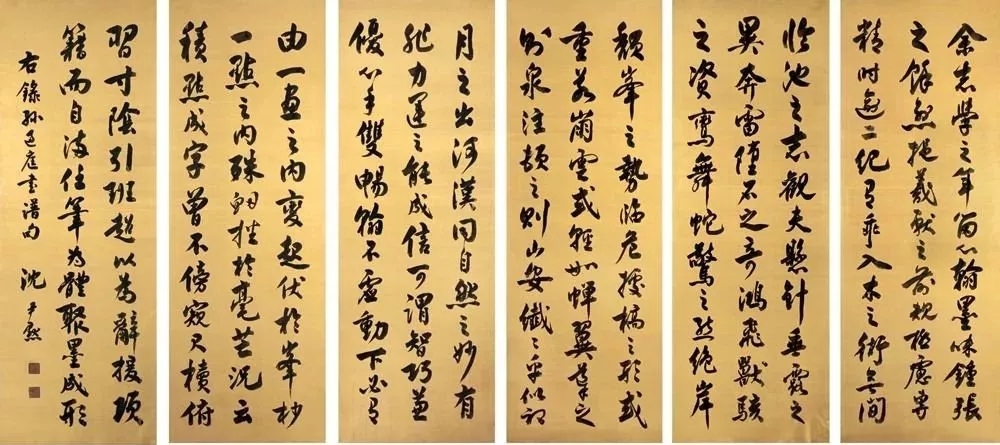 余志學之年留心翰墨味鍾張
之餘烈挹羲獻之前規極慮專
精時逾二紀有乖入木之術無間
臨池之志觀夫懸針垂露之
異奔雷墜石之奇鴻飛獸駭
之資鸞舞蛇驚之態絕岸
頹峯之勢臨危據槁之形或
重若崩雲或輕如蟬翼導之
則泉注頓之則山安纖〻乎似初
月之出河漢同自然之妙有
非力運之能成信可謂智巧兼
優心手雙暢翰不虛動下必有
由一畫之內變起伏於峯杪
一點之內殊衄挫於毫芒況云
積點成字曾不傍窺尺櫝俯
習寸陰引班超以為辭援項
籍而自滿任筆為體聚墨成形
右錄孫過庭書譜句 沈尹默